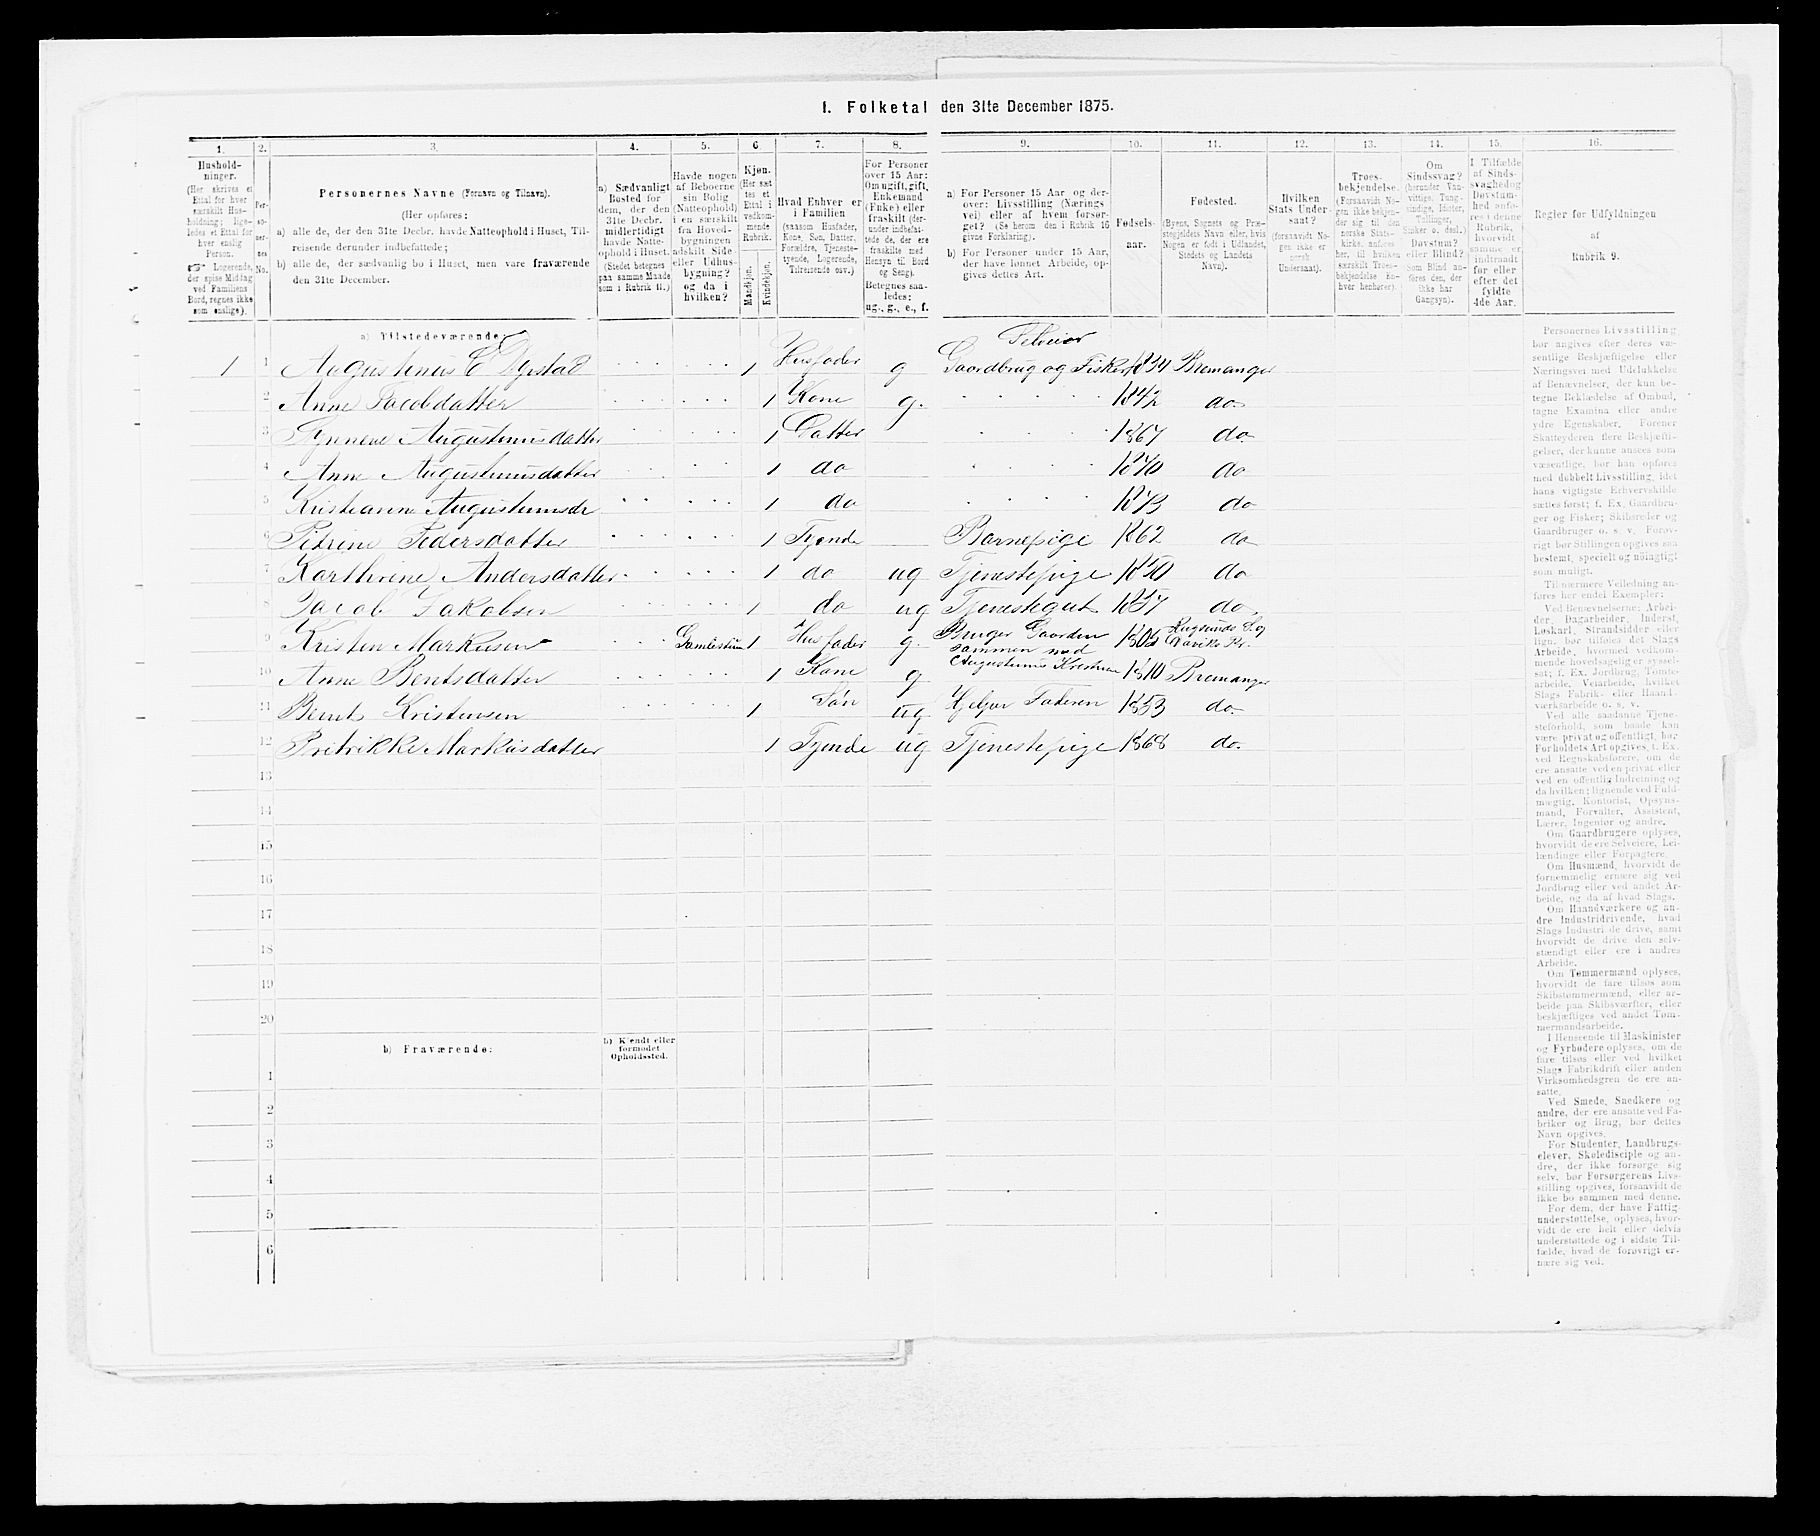 1. Folketal den 31te December 1875.
1. 2. 3. 4. 5. 6. 7. 8. 9. 10. 11. 12. 13. 14. 15. 16.
Hushold-
ninger.
(Her skrives et
Ettal for hver
særskilt Hus-
holdning; lige-
ledes et Ettal for
hver enslig
Person.
Logerende,
der spise Middag
ved Familiens
Bord, regnes ikke
som enslige).
Per-
so-
ner-
nes
No.
Personernes Navne (Fornavn og Tilnavn).
(Her opføres:
a) alle de, der den 31te Decbr. havde Natteophold i Huset, Til-
reisende derunder indbefattede;
b) alle de, der sædvanlig bo i Huset, men vare fraværende
den 31te December.
a) Sædvanligt
Bosted for
dem, der den
31te Decbr.
midlertidigt
havde Natte-
ophold i Huset.
(Stedet betegnes
paa samme Maade
som i Rubrik 11.)
Havde nogen
af Beboerne
sin Bolig
(Natteophold)
i en særskilt
fra Hoved-
bygningen
adskilt Side-
eller Udhus-
bygning?
og da i
hvilken?
Kjøn.
(Her sæt-
tes et
Ettal i
vedkom-
mende
Rubrik.
Mandkjøn.
Kvindekjøn.
Hvad Enhver er
i Familien
(saasom Husfader,
Kone, Søn, Datter,
Forældre, Tjeneste-
tyende, Logerende,
Tilreisende osv.)
For Personer
over 15 Aar:
Om ugift, gift,
Enkemand
(Enke) eller
fraskilt (der-
under indbefat-
tede de, der ere
fraskilte med
Hensyn til Bord
og Seng).
Betegnes saa-
ledes:
ug., g., e., f.
a) For Personer 15 Aar og der-
over: Livsstilling (Nærings-
vei) eller af hvem forsør-
get? (Se herom den i Rubrik 16
givne Forklaring).
b) For Personer under 15 Aar,
der have lønnet Arbeide, op-
gives dettes Art.
Fødsels-
aar.
Fødested.
(Byens, Sognets og Præ-
stegjeldets Navn eller, hvis
Nogen er født i Udlandet,
Stedets og Landets
Navn).
Hvilken
Stats Under-
saat?
(forsaavidt No-
gen ikke er
norsk
Undersaat).
Troes-
bekjendelse.
(Forsaavidt No-
gen ikke bekjen-
der sig til den
norske Stats-
kirke, anføres
her, til hvilken
særskilt Troes-
bekjendelse En-
hver henhører).
Om
Sindssvag?
(herunder Van-
vittige, Tung-
sindige, Idioter,
Tullinger,
Sinker o. desl.)
Døvstum?
eller Blind?
Som Blind an-
føres den, der
ikke har
Gangsyn).
I Tilfælde
af Sinds-
svaghed og
Døvstum-
hed anfø-
res i denne
Rubrik,
hvorvidt
samme er
indtraadt
før eller
efter det
fyldte
4de Aar.
Regler for Udfyldningen
af
Rubrik 9.
a) Tilstedeværende:
Selveier
1 1 Augustinus C Dyrstad 1 Husfader g Gaardbrug og Fisker 1834 Bremanger
2 Anne Jacobdatter 1 Kone g. 1842 do
3 Augustinusdatter 1 Datter 1867 do
4 Anne Augustinusdatter 1 do 1870 do
5 Kristianne Augustinusdr 1 do 1873 do
6 Petrine Pedersdatter 1 Tyende Barnepige 1862 do
7 Karthrine Andersdatter 1 do ug Tjenestepige 1850 do
8 Jacob Jakobsen 1 do ug Tjenestegut 1857 do
9 Kristen Markusen Gamlestuen 1 Husfader g. Bruger Gaarden 1805 Rugsunds S. og
sammen med
10 Anne Bentsdatter 1 Kone g Augustinus Kristensen 1810 Bremanger
11 Bernt Kristensen 1 Søn ug Hjelper Faderen 1853 do
12 Markusdatter 1 Tyende ug Tjenestepige 1868 do.
13
14
15
16
17
18
19
20
b) Fraværende: b) Kjendt eller
formodet
Opholdssted.
1
2
3
4
5
6
Personernes Livsstilling
bør angives efter deres væ-
sentlige Beskjæftigelse eller
Næringsvei med Udelukkelse
af Benævnelser, der kun be-
tegne Beklædelse af Ombud,
tagne Examina eller andre
ydre Egenskaber. Forener
Skatteyderen flere Beskjæfti-
gelser, der kunne ansees som
væsentlige, bør han opføres
med dobbelt Livsstilling, idet
hans vigtigste Erhvervskilde
sættes først; f. Ex. Gaardbru-
ger og Fisker; Skibsreder og
Gaardbruger o. s. v. Forøv-
rigt bør Stillingen opgives saa
bestemt, specielt og nøiagtigt
som muligt.
Til nærmere Veiledning an-
føres her endel Exempler:
Ved Benævnelserne: Arbei-
der, Dagarbeider, Inderst,
Løskarl, Strandsidder eller
lign. bør tilføies det Slags
Arbeide, hvormed vedkom-
mende hovedsagelig er syssel-
sat; f. Ex. Jordbrug, Tomte-
arbeide, Veiarbeide, hvilket
Slags Fabrik- eller Haand-
værksarbeide o. s. v.
Ved alle saadanne Tjene-
steforhold, som baade kan
være privat og offentligt, bør
Forholdets Art opgives, f. Ex.
ved Regnskabsførere, om de
ere ansatte ved en privat eller
ved en offentlig Indretning og
da hvilken; lignende ved Fuld-
mægtig, Kontorist, Opsyns-
mand, Forvalter, Assistent,
Lærer, Ingeniør og andre.
Om Gaardbrugere oplyses,
hvorvidt de ere Selveiere, Lei-
lændinge eller Forpagtere.
Om Husmænd, hvorvidt de
fornemmelig ernære sig ved
Jordbrug eller ved andet Ar-
beide, og da af hvad Slags.
Om Haandværkere og an-
dre Industridrivende, hvad
Slags Industri de drive, samt
hvorvidt de drive den selv-
stændigt eller ere i andres
Arbeide.
Om Tømmermænd oplyses,
hvorvidt de fare tilsøs som
Skibstømmermænd, eller ar-
beide paa Skibsværfter, eller
beskjæftiges ved andet Tøm-
mermandsarbeide.
I Henseende til Maskinister
og Fyrbødere oplyses, om de
fare tilsøs eller ved hvilket
Slags Fabrikdrift eller anden
Virksomhedsgren de ere an-
satte.
Ved Smede, Snedkere og
andre, der ere ansatte ved Fa-
briker og Brug, bør dettes
Navn opgives.
For Studenter, Landbrugs-
elever, Skoledisciple og an-
dre, der ikke forsørge sig
selv, bør Forsørgerens Livs-
stilling opgives, forsaavidt de
ikke bo sammen med denne.
For dem, der have Fattig-
understøttelse, oplyses, hvor-
vidt de ere helt eller delvis
understøttede og i sidste Til-
fælde, hvad de forøvrigt er-
nære sig ved.